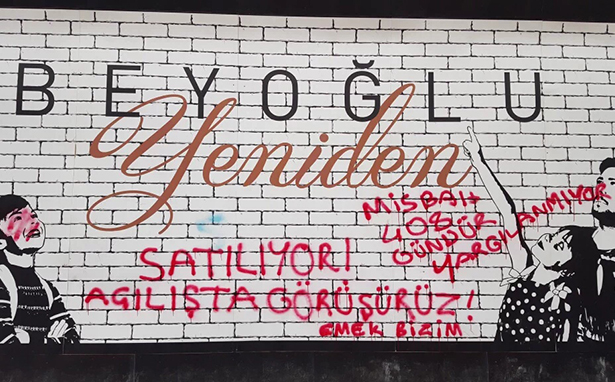 BEYOĞLU
Yeniden
MİSBAH
408
GÜNDÜR
YARGILANMIYOR
SATILIYOR!
AÇILIŞTA GÖRÜŞÜRÜZ!
EMEK BİZİM